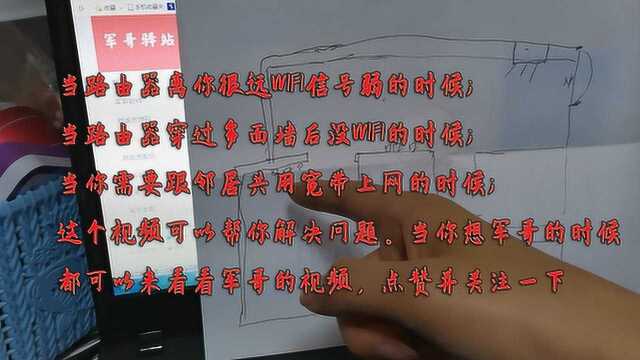 收藏
手机收藏夹
军哥驿站
当路由器离你很远WIFI信号弱的时候；
当路由器穿过多面墙后没WIFI的时候；
当你需要跟邻居共用宽带上网的时候；
这个视频可以帮你解决问题。当你想军哥的时候
都可以来看看军哥的视频，点赞并关注一下